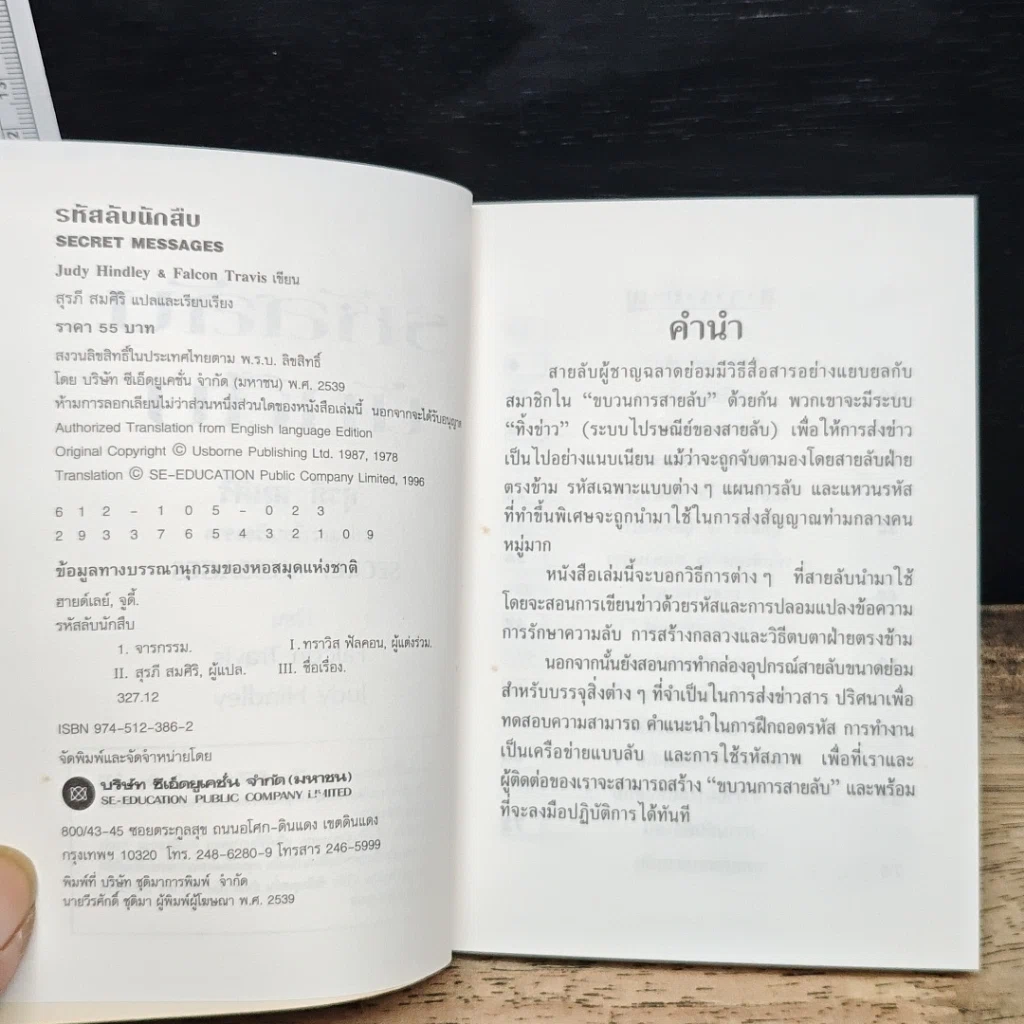 รหัสลับนักสืบ
SECRET MESSAGES
Judy Hindley & Falcon Travis เขียน
สุรภี สมศิริ แปลและเรียบเรียง
ราคา 55 บาท
สงวนลิขสิทธิ์ในประเทศไทยตาม พ.ร.บ. ลิขสิทธิ์
โดย บริษัท ซีเอ็ดยูเคชั่น จำกัด (มหาชน) พ.ศ. 2539
ห้ามการลอกเลียนไม่ว่าส่วนหนึ่งส่วนใดของหนังสือเล่มนี้ นอกจากจะได้รับอนุญาต
Authorized Translation from English language Edition
Original Copyright © Usborne Publishing Ltd. 1987, 1978
Translation © SE-EDUCATION Public Company Limited, 1996
6 1 2 - 1 0 5 - 0 2 3
2 9 3 3 7 6 5 4 3 2 1 0 9
ข้อมูลทางบรรณานุกรมของหอสมุดแห่งชาติ
ฮายด์เลย์, จูดี้.
รหัสลับนักสืบ
1. จารกรรม. I.ทราวิส ฟัลคอน, ผู้แต่งร่วม.
II. สุรภี สมศิริ, ผู้แปล. III. ชื่อเรื่อง.
327.12
ISBN 974-512-386-2
จัดพิมพ์และจัดจำหน่ายโดย
บริษัท ซีเอ็ดยูเคชั่น จำกัด (มหาชน)
SE-EDUCATION PUBLIC COMPANY LIMITED
800/43-45 ซอยตระกูลสุข ถนนอโศก-ดินแดง เขตดินแดง
กรุงเทพฯ 10320 โทร. 248-6280-9 โทรสาร 246-5999
พิมพ์ที่ บริษัท ชุติมาการพิมพ์ จำกัด
นายวีรศักดิ์ ชุติมา ผู้พิมพ์ผู้โฆษณา พ.ศ. 2539
คำนำ
สายลับผู้ชาญฉลาดย่อมมีวิธีสื่อสารอย่างแยบยลกับ
สมาชิกใน “ขบวนการสายลับ” ด้วยกัน พวกเขาจะมีระบบ
“ทิ้งข่าว” (ระบบไปรษณีย์ของสายลับ) เพื่อให้การส่งข่าว
เป็นไปอย่างแนบเนียน แม้ว่าจะถูกจับตามองโดยสายลับฝ่าย
ตรงข้าม รหัสเฉพาะแบบต่าง ๆ แผนการลับ และแหวนรหัส
ที่ทำขึ้นพิเศษจะถูกนำมาใช้ในการส่งสัญญาณท่ามกลางคน
หมู่มาก
หนังสือเล่มนี้จะบอกวิธีการต่าง ๆ ที่สายลับนำมาใช้
โดยจะสอนการเขียนข่าวด้วยรหัสและการปลอมแปลงข้อความ
การรักษาความลับ การสร้างกลลวงและวิธีตบตาฝ่ายตรงข้าม
นอกจากนั้นยังสอนการทำกล่องอุปกรณ์สายลับขนาดย่อม
สำหรับบรรจุสิ่งต่าง ๆ ที่จำเป็นในการส่งข่าวสาร ปริศนาเพื่อ
ทดสอบความสามารถ คำแนะนำในการฝึกถอดรหัส การทำงาน
เป็นเครือข่ายแบบลับ และการใช้รหัสภาพ เพื่อที่เราและ
ผู้ติดต่อของเราจะสามารถสร้าง “ขบวนการสายลับ” และพร้อม
ที่จะลงมือปฏิบัติการได้ทันที